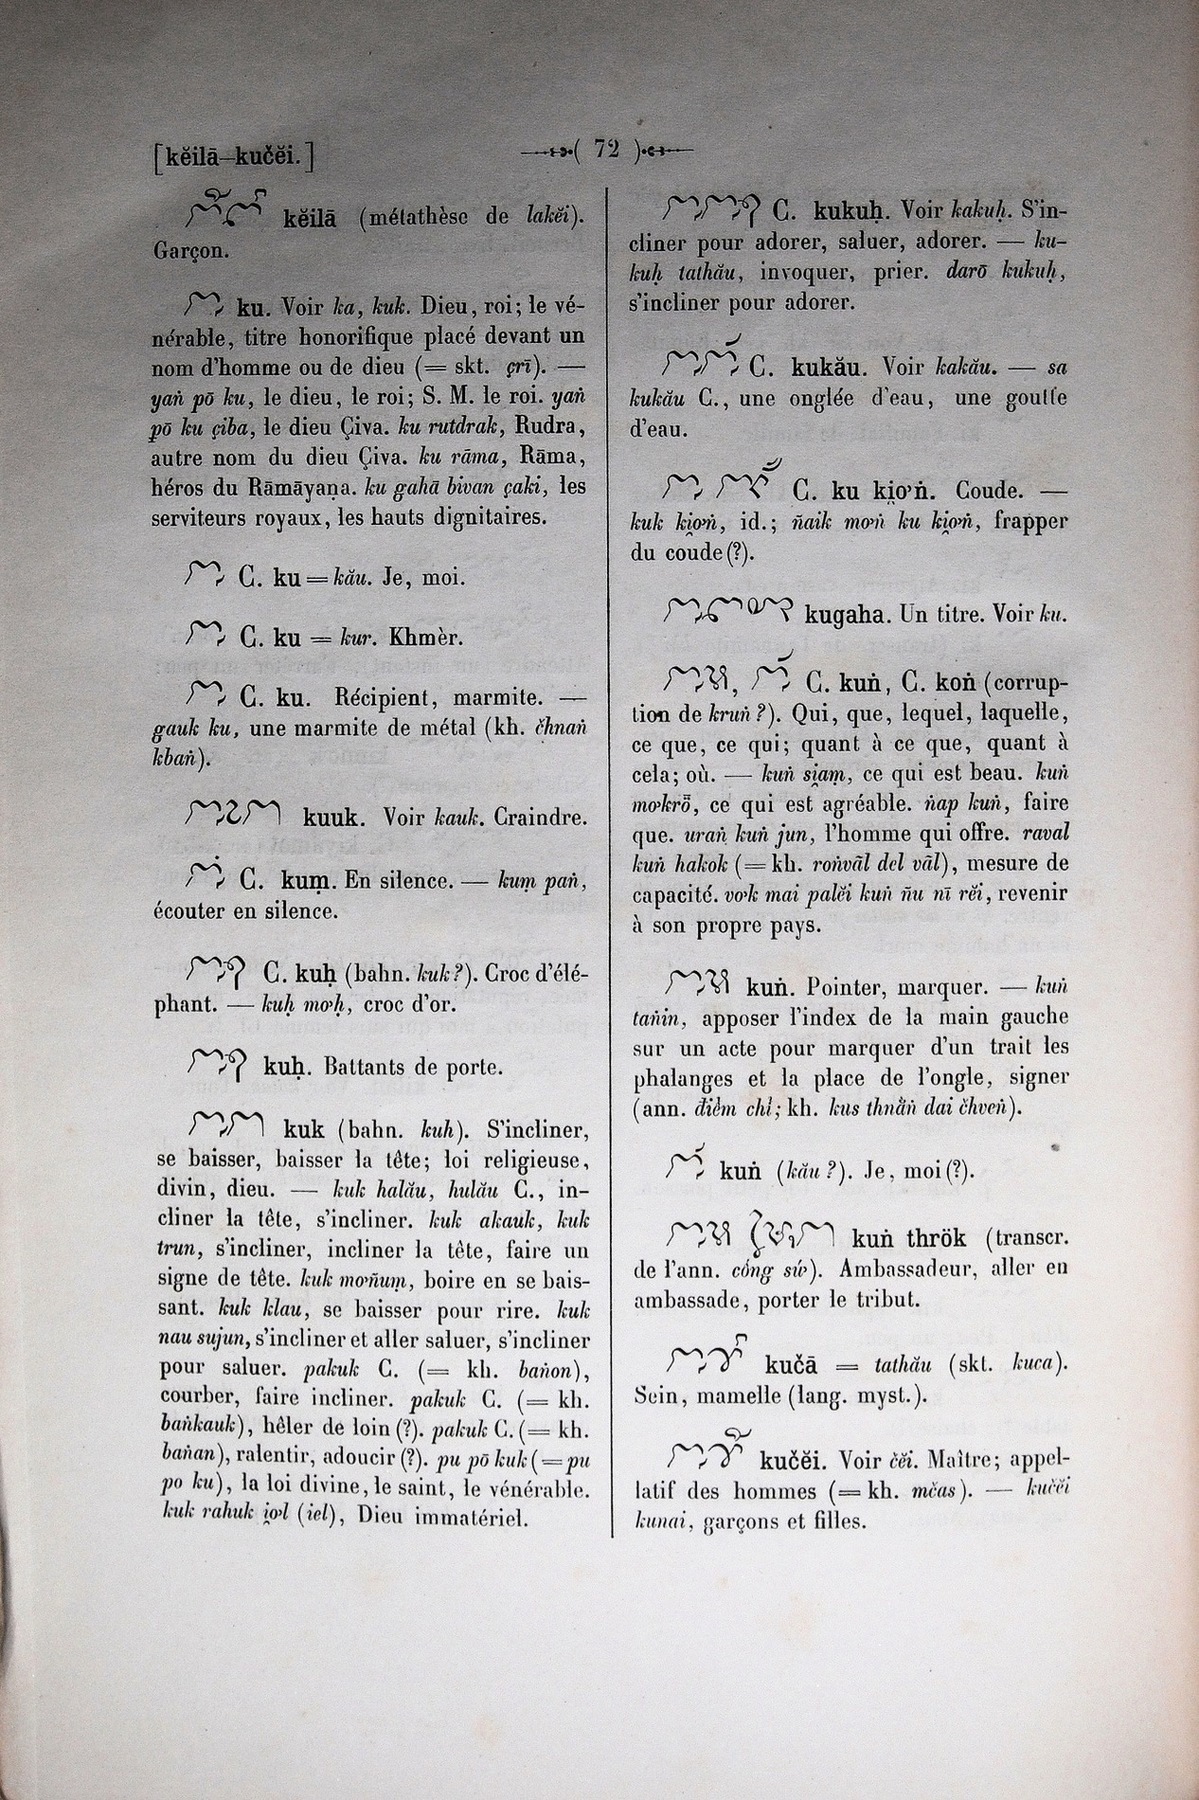 [kĕilā–kučĕi.]
( 72 )
kĕilā (métathèse de lakĕi).
Garçon.
ku. Voir ka, kuk. Dieu, roi; le vé-
nérable, titre honorifique placé devant un
nom d'homme ou de dieu (= skt. çrī). —
yaṅ pō ku, le dieu, le roi; S. M. le roi. yaṅ
pō ku çiba, le dieu Çiva. ku rutdrak, Rudra,
autre nom du dieu Çiva. ku rāma, Rāma,
héros du Rāmāyaṇa. ku gahā bivan çaki, les
serviteurs royaux, les hauts dignitaires.
C. ku = kău. Je, moi.
C. ku = kur. Khmèr.
C. ku. Récipient, marmite. —
gauk ku, une marmite de métal (kh. čhnaṅ
kbaṅ).
kuuk. Voir kauk. Craindre.
C. kuṃ. En silence. — kuṃ paṅ,
écouter en silence.
C. kuḥ (bahn. kuk?). Croc d'élé-
phant. — kuḥ mơḥ, croc d'or.
kuḥ. Battants de porte.
kuk (bahn. kuh). S'incliner,
se baisser, baisser la tête; loi religieuse,
divin, dieu. — kuk halău, hulău C., in-
cliner la tête, s'incliner. kuk akauk, kuk
trun, s'incliner, incliner la tête, faire un
signe de tête. kuk mơñuṃ, boire en se bais-
sant. kuk klau, se baisser pour rire. kuk
nau sujun, s'incliner et aller saluer, s'incliner
pour saluer. pakuk C. (= kh. bañon),
courber, faire incliner. pakuk C. (= kh.
baṅkauk), hêler de loin (?). pakuk C. (= kh.
bañan), ralentir, adoucir (?). pu pō kuk (= pu
po ku), la loi divine, le saint, le vénérable.
kuk rahuk i̯ơl (iel), Dieu immatériel.
C. kukuḥ. Voir kakuḥ. S'in-
cliner pour adorer, saluer, adorer. — ku-
kuḥ tathău, invoquer, prier. darō kukuḥ,
s'incliner pour adorer.
C. kukău. Voir kakău. — sa
kukău C., une onglée d'eau, une goutte
d'eau.
C. ku ki̯ơṅ. Coude. —
kuk ki̯ơṅ, id.; ñaik mơṅ ku ki̯ơṅ, frapper
du coude (?).
kugaha. Un titre. Voir ku.
C. kuṅ, C. koṅ (corrup-
tion de kruṅ?). Qui, que, lequel, laquelle,
ce que, ce qui; quant à ce que, quant à
cela; où. — kuṅ si̯aṃ, ce qui est beau. kuṅ
mơkrö̆, ce qui est agréable. ṅap kuṅ, faire
que. uraṅ kuṅ jun, l'homme qui offre. raval
kuṅ hakok (= kh. roṅvāl del vāl), mesure de
capacité. vơk mai palĕi kuṅ ñu nī rĕi, revenir
à son propre pays.
kuṅ. Pointer, marquer. — kuṅ
tañin, apposer l'index de la main gauche
sur un acte pour marquer d'un trait les
phalanges et la place de l'ongle, signer
(ann. điềm chỉ; kh. kus thnăṅ dai čhveṅ).
kuṅ (kău?). Je, moi (?).
kuṅ thrök (transcr.
de l'ann. cống sứ). Ambassadeur, aller en
ambassade, porter le tribut.
kučā = tathău (skt. kuca).
Sein, mamelle (lang. myst.).
kučĕi. Voir čĕi. Maître; appel-
latif des hommes (= kh. mčas). — kučĕi
kunai, garçons et filles.